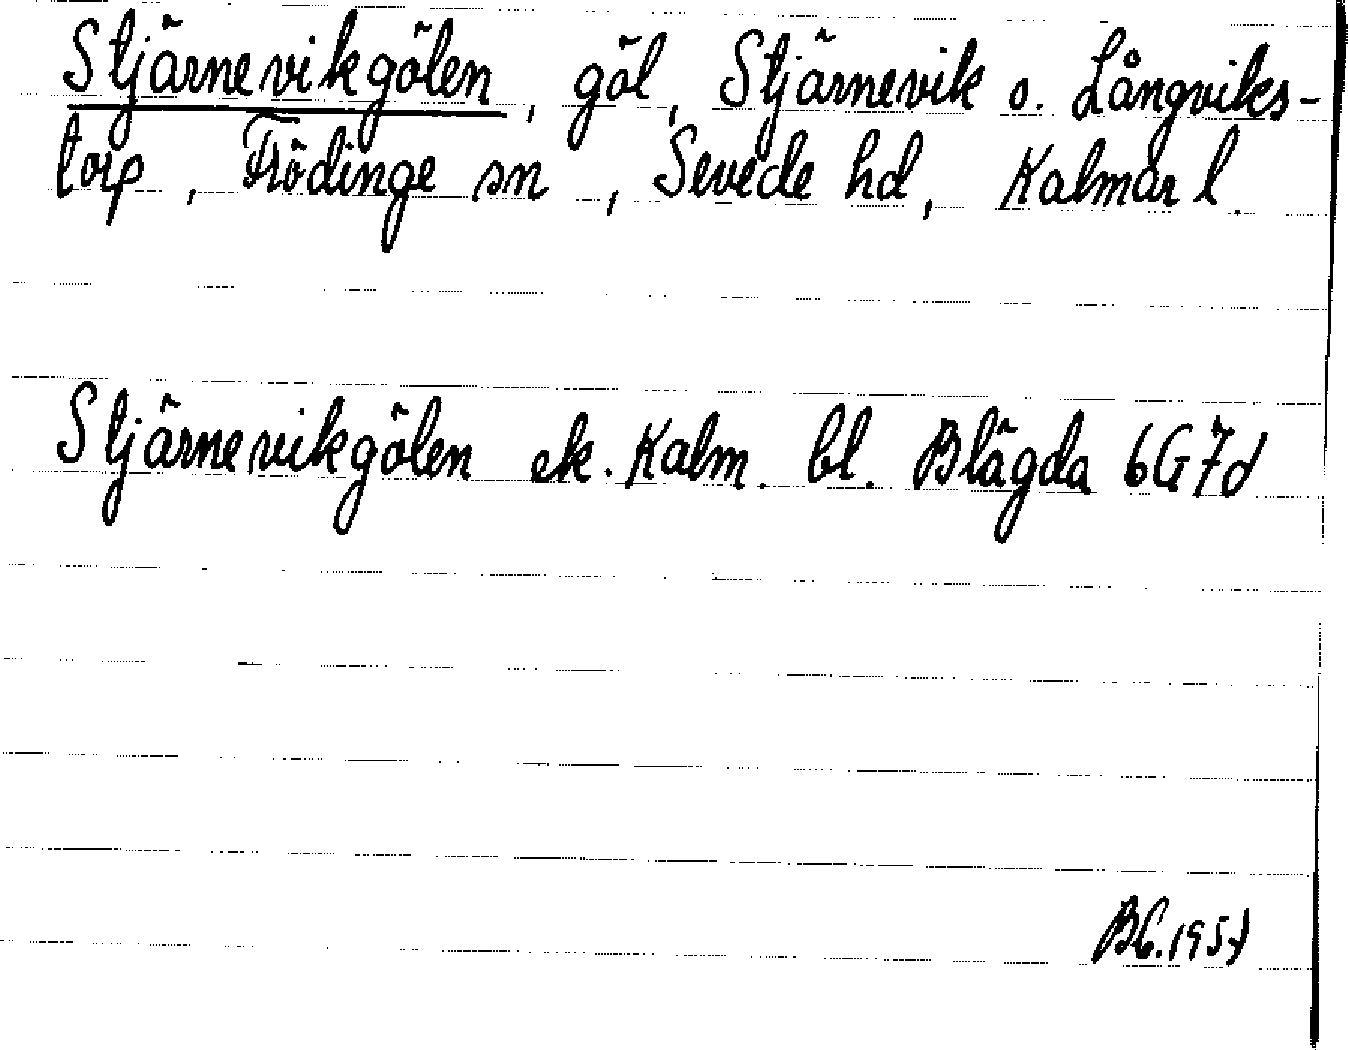 Stjärnevikgölen, göl, Stjärnevik o. Långviks-
torp, Frödinge sn, Sevede hd, Kalmar l.
Stjärnevikgölen ek. Kalm. bl. Blägda 6G7d